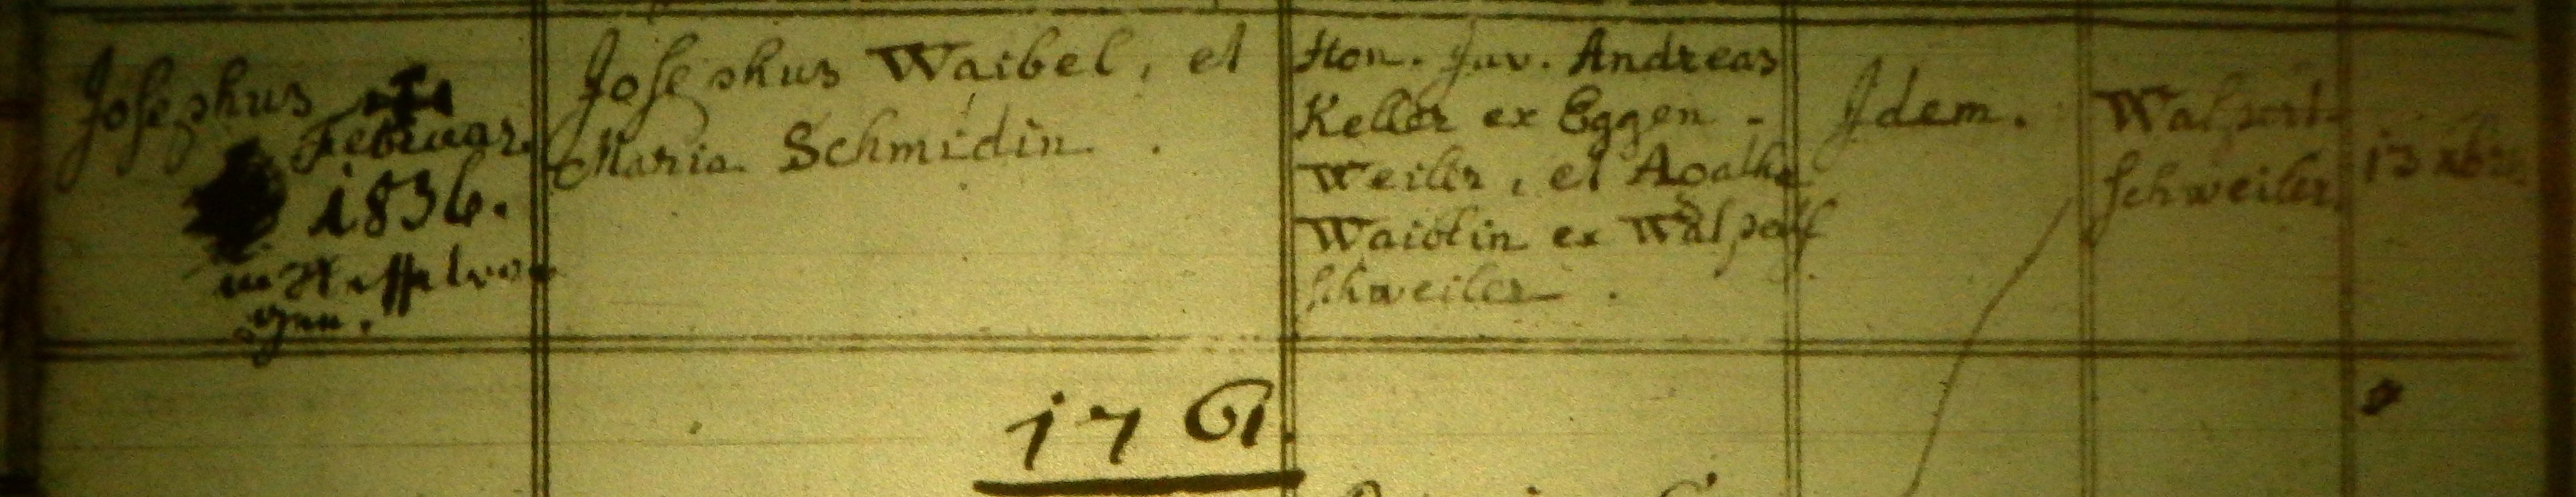 Josephus ✝
Februar.
1836.
in Hesselwan
gen.
Josephus Waibel, et
Maria Schmidin.
Hon. Juv. Andreas
Keller ex Eggen-
Weiler, et Agatha
Waiblin ex Walpert
schweiler.
Idem.
Walpert-
schweiler.
13 xbris
1761.